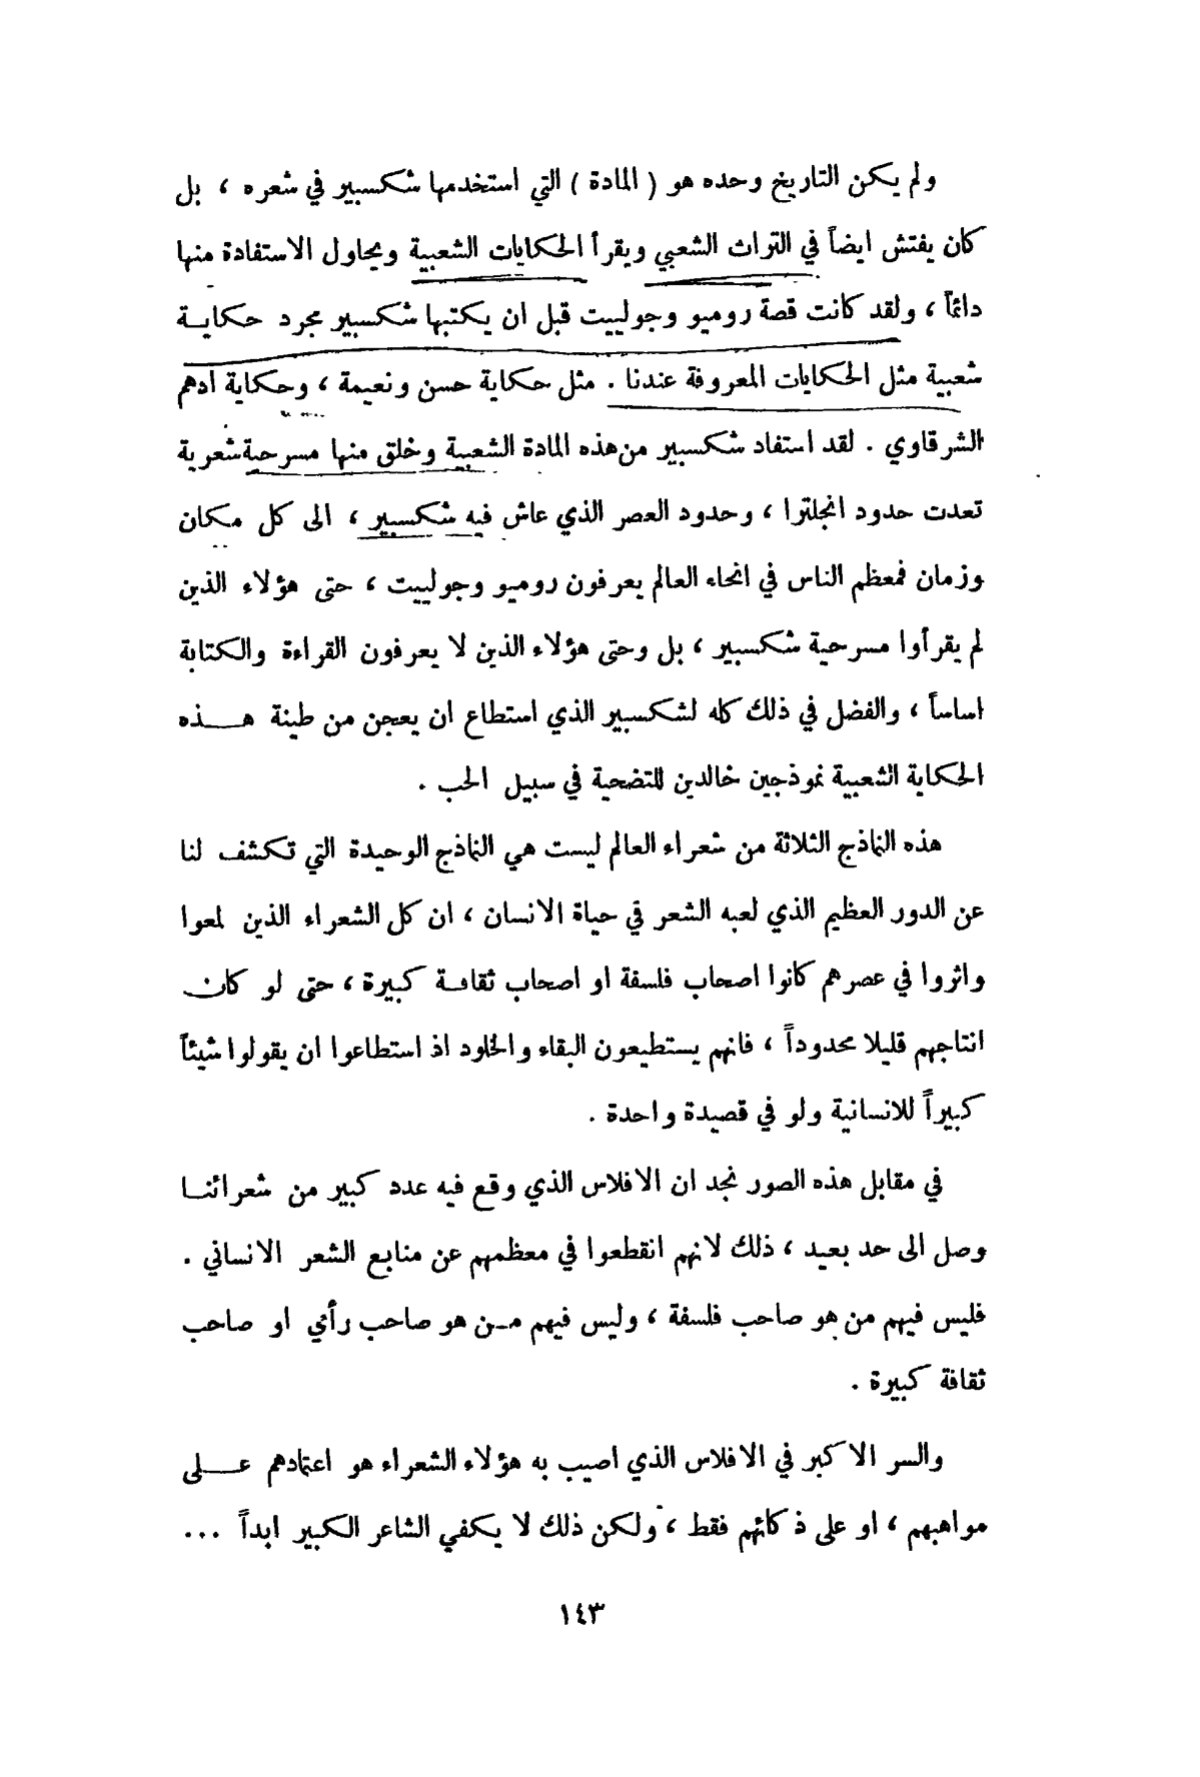 ولم يكن التاريخ وحده هو ( المادة ) التي استخدمها شكسبير في شعره ، بل
كان يفتش ايضاً في التراث الشعبي ويقرأ الحكايات الشعبية ويحاول الاستفادة منها
دائماً ، ولقد كانت قصة روميو وجولييت قبل ان يكتبها شكسبير مجرد حكايـة
شعبية مثل الحكايات المعروفة عندنا . مثل حكاية حسن ونعيمة ، وحكاية ادهم
الشرقاوي . لقد استفاد شكسبير من هذه المادة الشعبية وخلق منها مسرحية شعرية
تعدت حدود انجلترا ، وحدود العصر الذي عاش فيه شكسبير ، الى كل مكان
وزمان فمعظم الناس في انحاء العالم يعرفون روميو وجولييت ، حتى هؤلاء الذين
لم يقرأوا مسرحية شكسبير ، بل وحتى هؤلاء الذين لا يعرفون القراءة والكتابة
اساساً ، والفضل في ذلك كله لشكسبير الذي استطاع ان يعجن من طينة هـــذه
الحكاية الشعبية نموذجين خالدين للتضحية في سبيل الحب .
هذه النماذج الثلاثة من شعراء العالم ليست هي النماذج الوحيدة التي تكشف لنا
عن الدور العظيم الذي لعبه الشعر في حياة الانسان ، ان كل الشعراء الذين لمعوا
واثروا في عصرهم كانوا اصحاب فلسفة او اصحاب ثقافـة كبيرة ، حتى لو كان
انتاجهم قليلا محدوداً ، فانهم يستطيعون البقاء والخلود اذ استطاعوا ان يقولوا شيئاً
كبيراً للانسانية ولو في قصيدة واحدة .
في مقابل هذه الصور نجد ان الافلاس الذي وقع فيه عدد كبير من شعرائنـا
وصل الى حد بعيد ، ذلك لانهم انقطعوا في معظمهم عن منابع الشعر الانساني .
فليس فيهم من هو صاحب فلسفة ، وليس فيهم مـن هو صاحب رأي او صاحب
ثقافة كبيرة .
والسر الاكبر في الافلاس الذي اصيب به هؤلاء الشعراء هو اعتمادهم عـــلى
مواهبهم ، او على ذكائهم فقط ، ولكن ذلك لا يكفي الشاعر الكبير ابداً ...
١٤٣